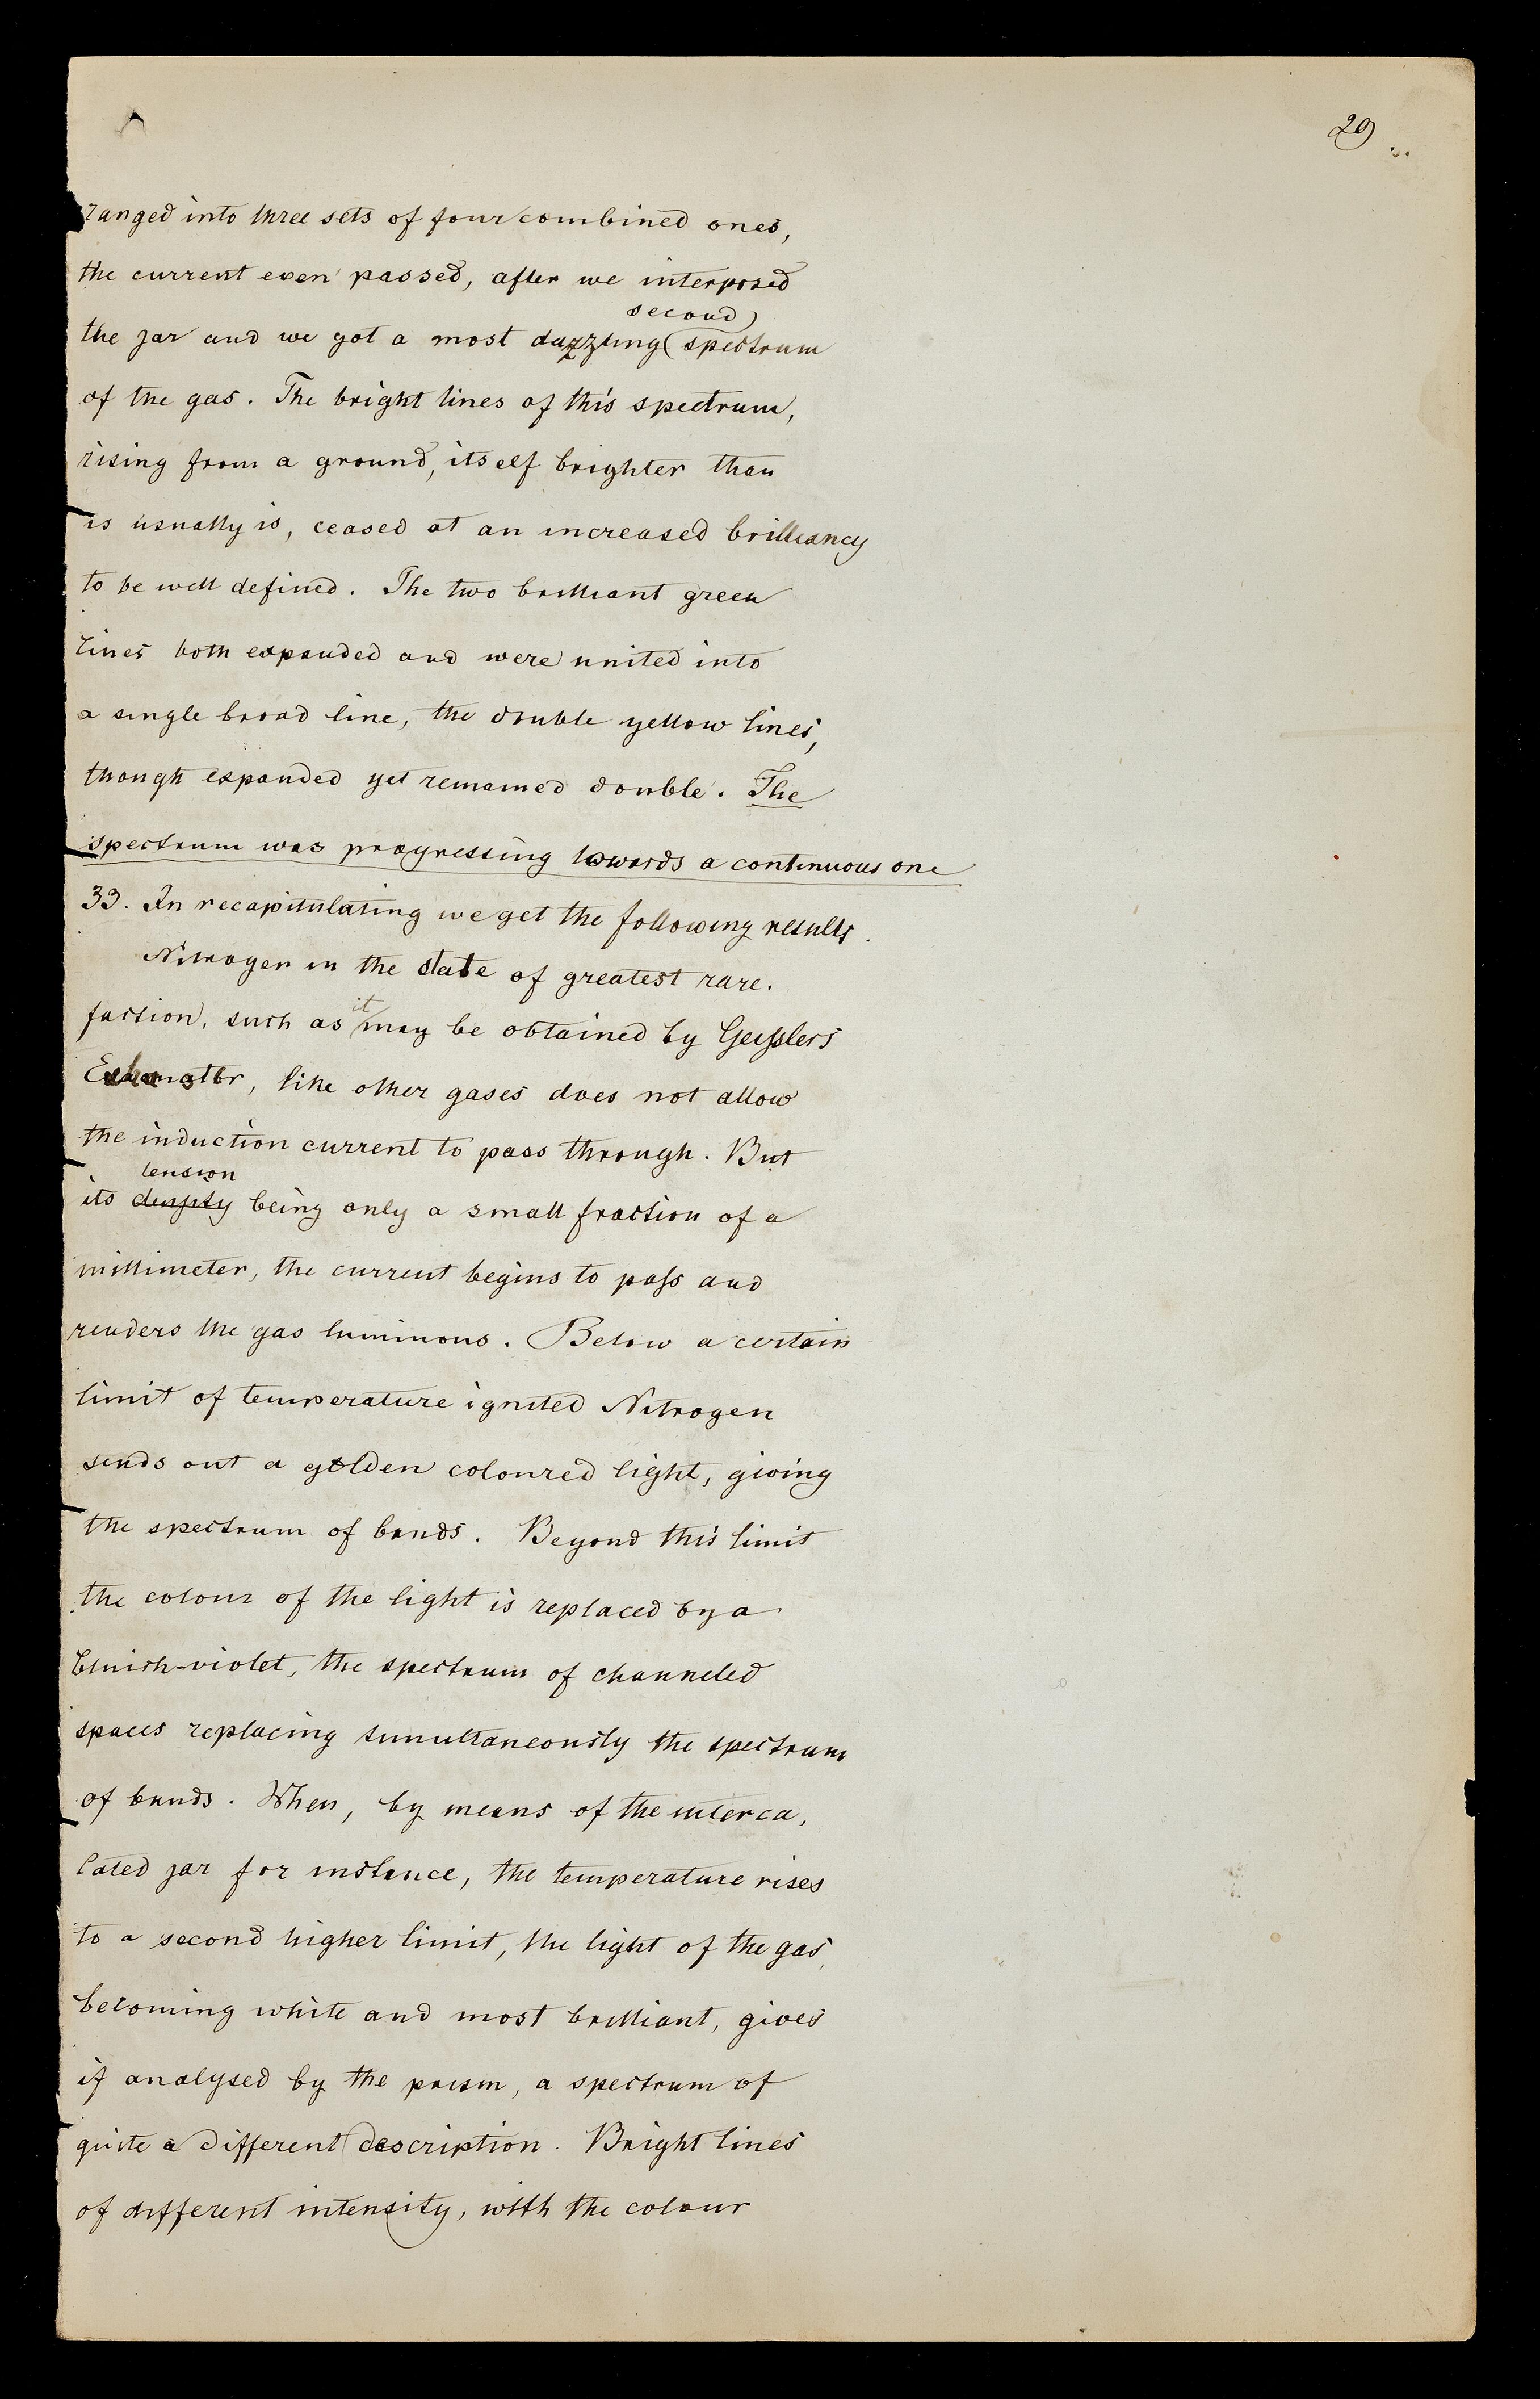 29
ranged into three sets of four combined ones,
the current even passed, after we interposed
second
the jar and we got a most dazzling spectrum
of the gas. The bright lines of this spectrum,
rising from a ground, itself brighter than
is usually is, ceased at an increased brilliancy
to be well defined. The two brilliant green
lines both expanded and were united into
a single broad line, the double yellow lines,
though expanded yet remained double. The
spectrum was progressing towards a continuous one
33. In recapitulating we get the following results.
Nitrogen in the state of greatest rare-
faction, such as it may be obtained by Geisslers
Exhauster, like other gases does not allow
the induction current to pass through. But
tension
its density being only a small fraction of a
millimeter, the current begins to pass and
renders the gas luminous. Below a certain
limit of temperature ignited Nitrogen
sends out a golden coloured light, giving
the spectrum of bands. Beyond this limit
the colour of the light is replaced by a
bluish-violet, the spectrum of channeled
spaces replacing simultaneously the spectrum
of bands. When, by means of the interca-
lated jar for instance, the temperature rises
to a second higher limit, the light of the gas,
becoming white and most brilliant, gives
if analysed by the prism, a spectrum of
quite a different description. Bright lines
of different intensity, with the colour